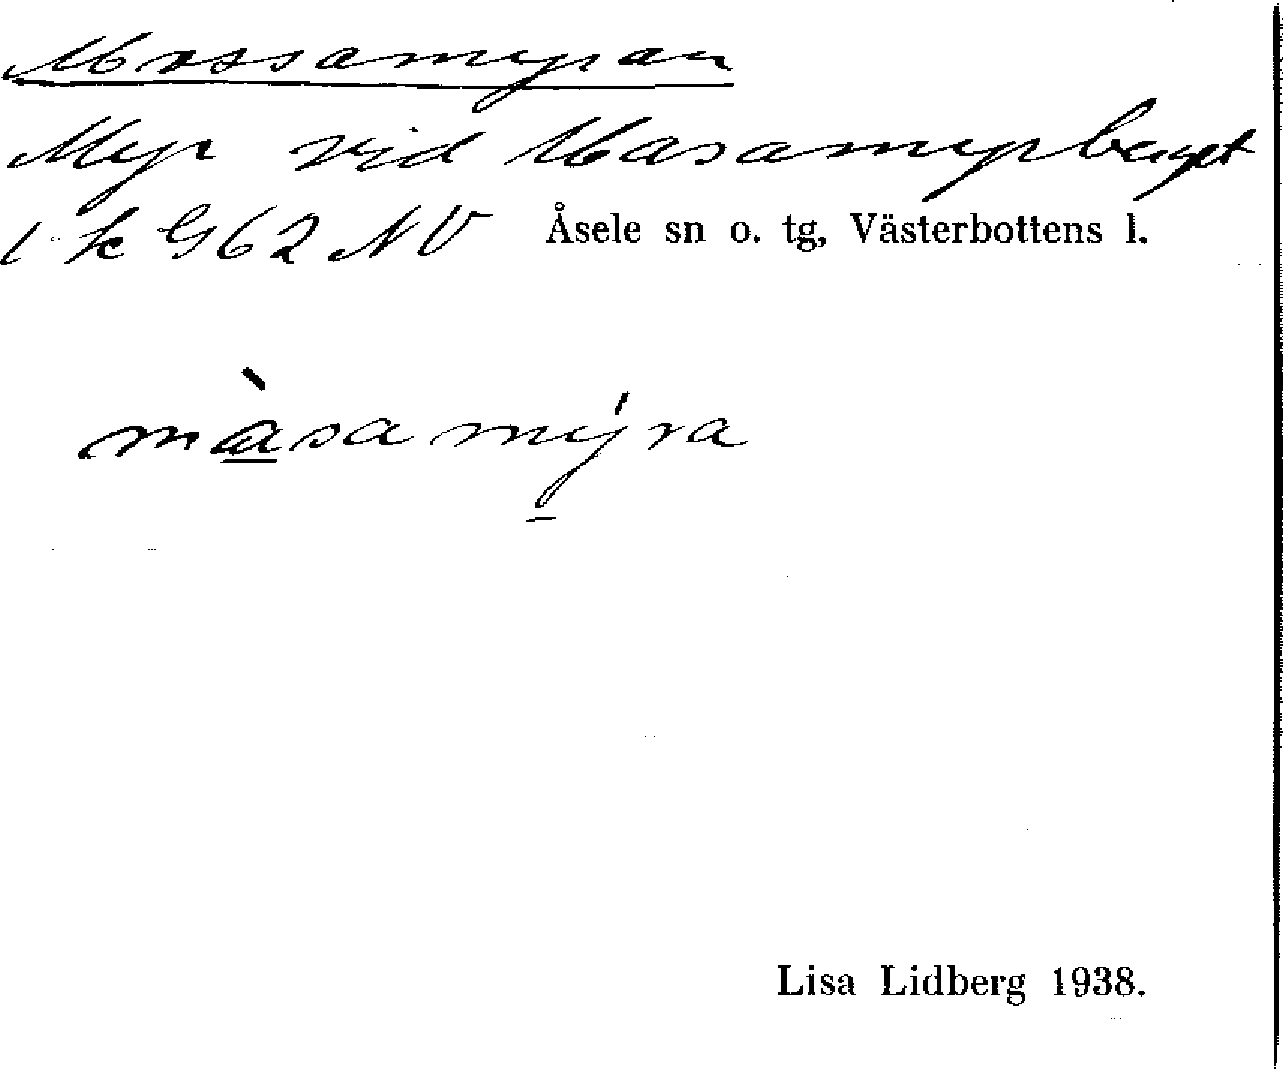 Mossamyran
Myr vid Masamyrberget
i k G 62 NV Åsele sn o. tg, Västerbottens l.
màsamýra
Lisa Lidberg 1938.